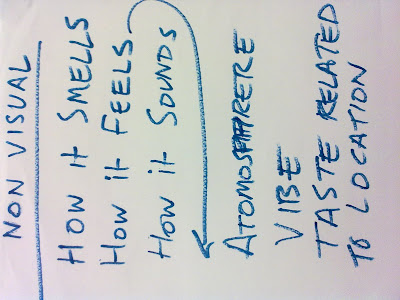 NON VISUAL
HOW it SMELLS
HOW it FEELS
HOW it SOUNDS
ATOMOSPHRERE
VIBE
TASTE RELATED
TO LOCATION